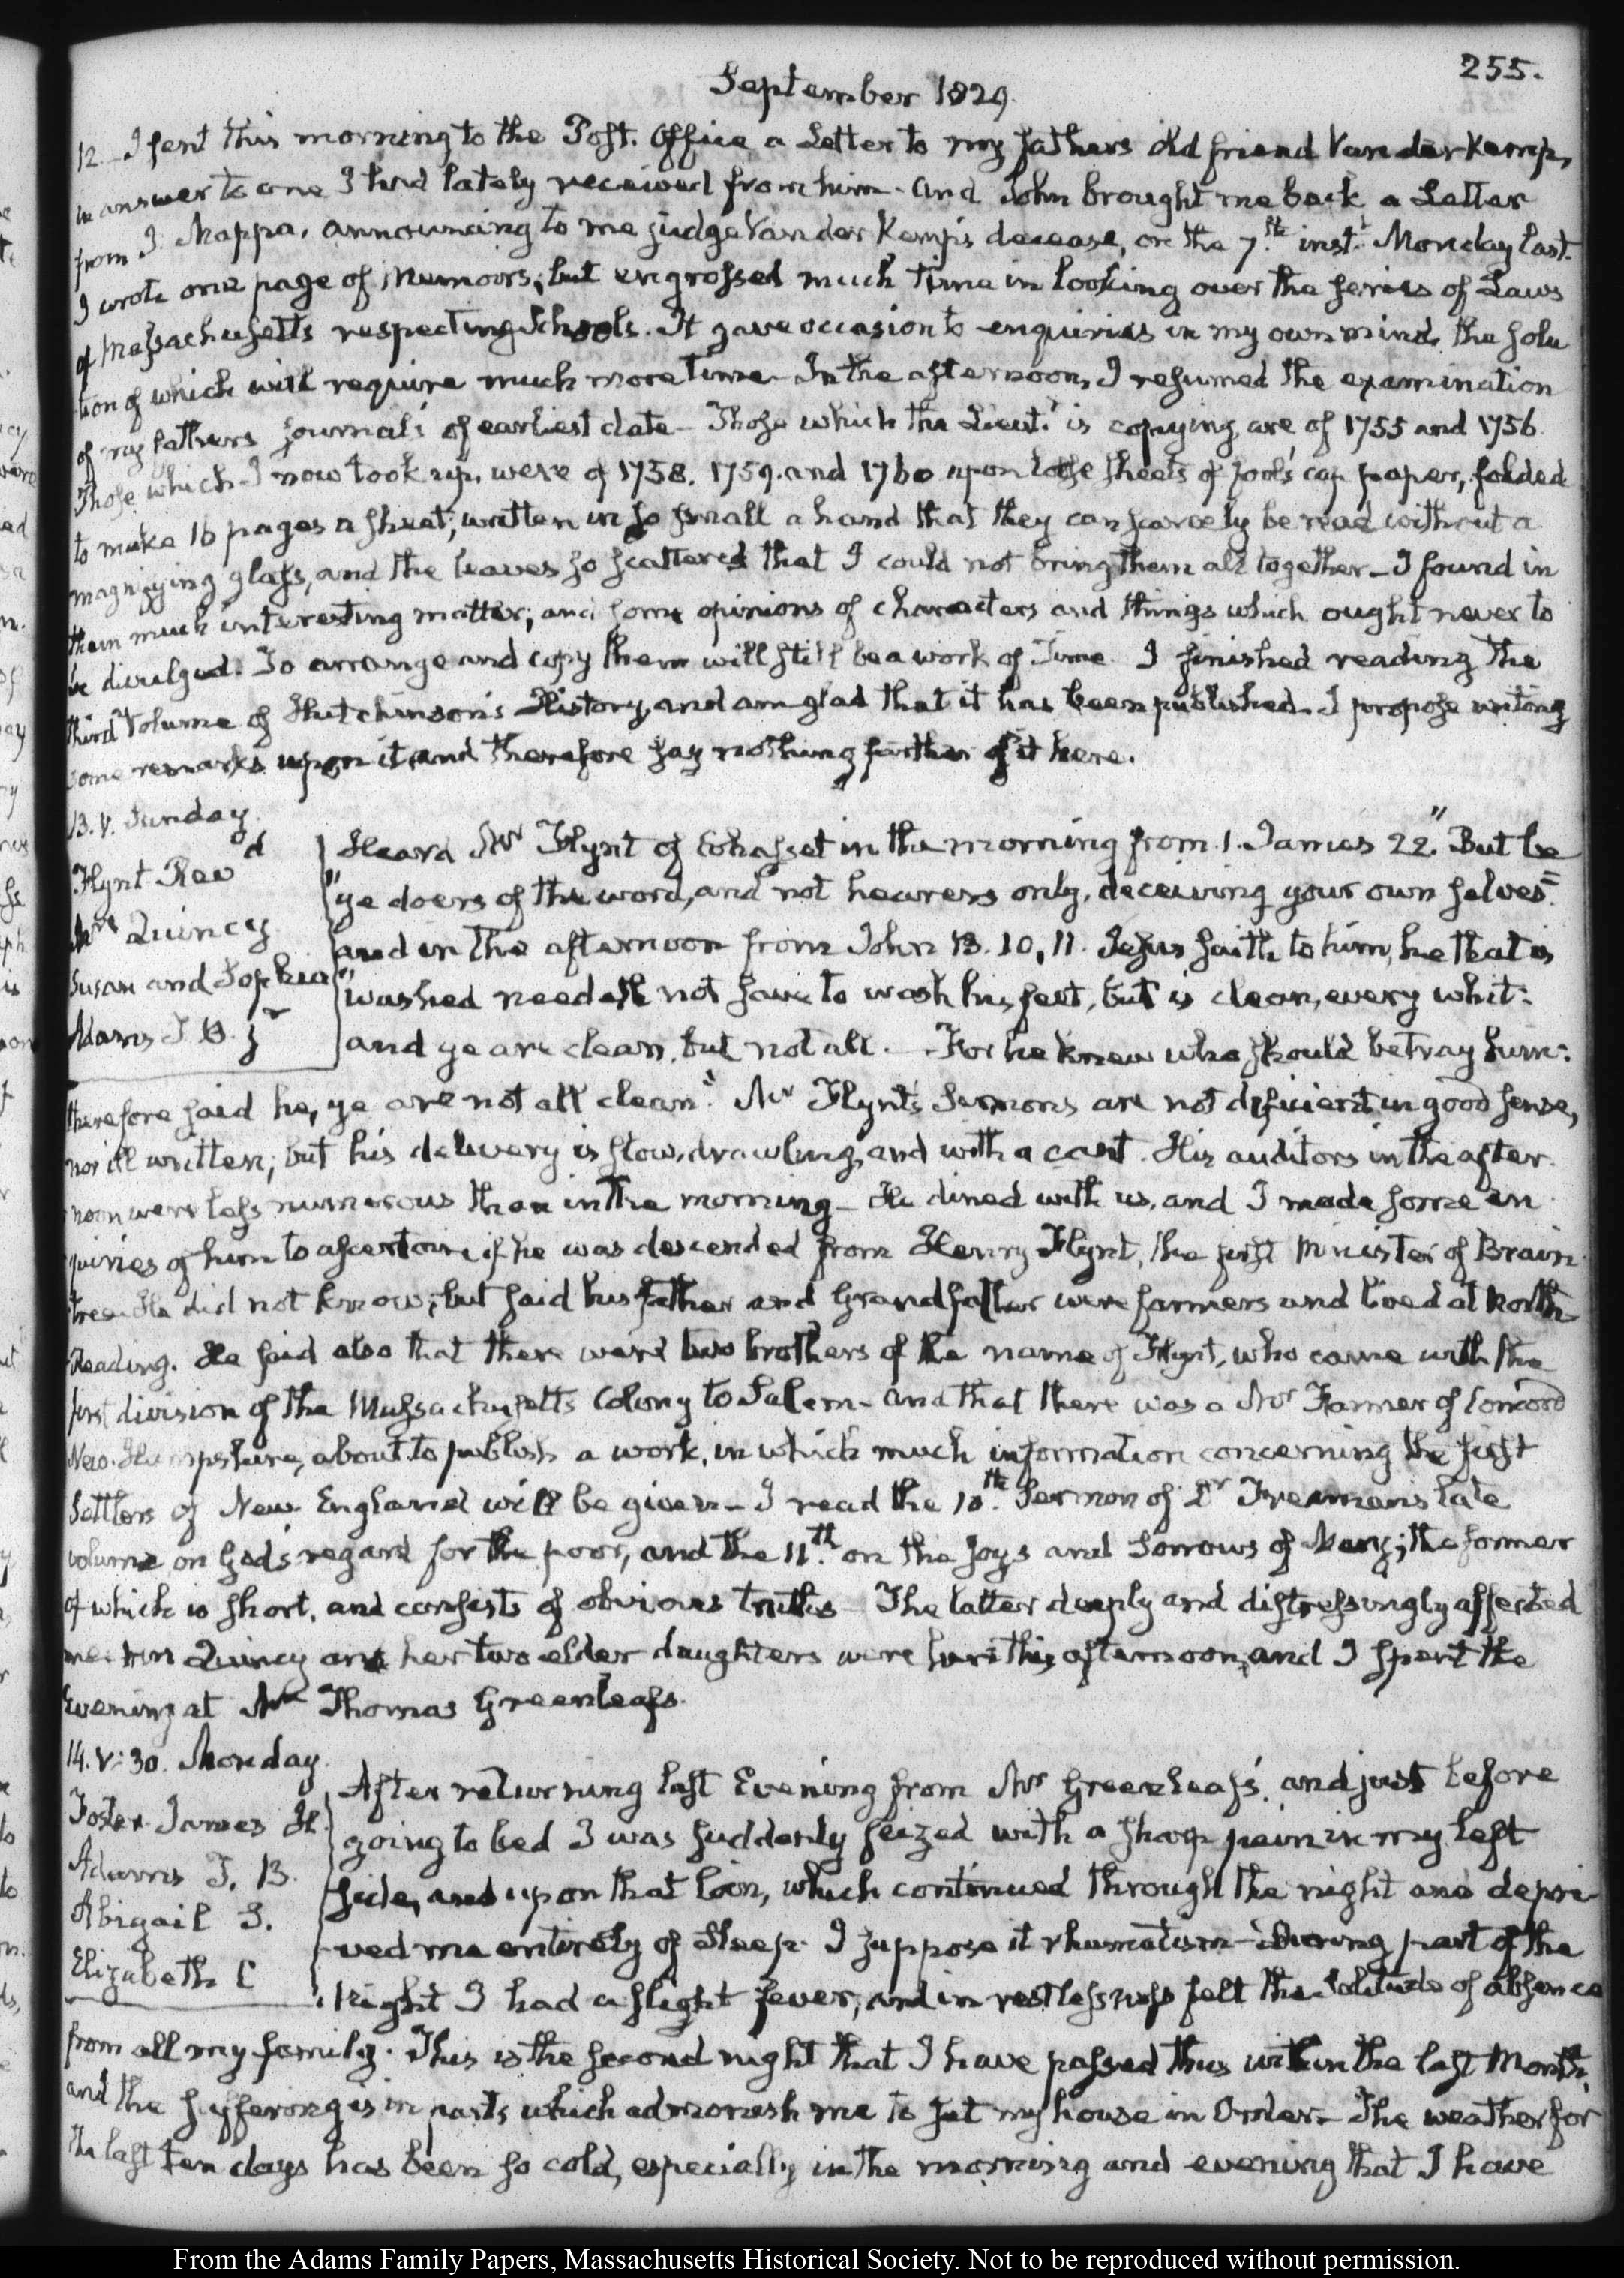 255.
September 1829.
12. I sent this morning to the Post. Office a Letter to my fathers old friend Vanderkemp,
in answer to one I had lately received from him. and John brought me back a Letter
from J. Mappa, announcing to me judge Vanderkemp's decease, on the 7.th inst.t Monday last.
I wrote one page of Memoirs; but engrossed much time in looking over the series of Laws
of Massachusetts respecting Schools. It gave occasion to enquiries in my own mind, the solu
tion of which will require much more Time. In the afternoon, I resumed the examination
of my fathers journals of earliest date. Those which the Lieut.t is copying, are of 1755 and 1756.
Those which I now took up, were of 1758. 1759. and 1760 upon loose sheets of fool's cap paper, folded
to make 16 pages a sheet; written in so small a hand that they can scarcely be read without a
magnifying glass, and the leaves so scattered that I could not bring them all together. I found in
them much interesting matter; and some opinions of characters and things which ought never to
be divulged. To arrange and copy them will still be a work of Time. I finished reading the
third Volume of Hutchinson's History, and am glad that it has been published. I propose writing
some remarks upon it, and therefore say nothing further of it here.
13. V. Sunday.
Flynt Revd
Mrs Quincy
Susan and Sophia
Adams T. B. jr
Heard Mr Flynt of Cohasset in the morning from 1. James 22. "But be
"ye doers of the word, and not hearers only, deceiving your own selves"
and in the afternoon from John 13. 10, 11. Jesus saith to him, he that is
"washed needeth not save to wash his feet, but is clean, every whit:
and ye are clean, but not all. For he knew who should betray him:
therefore said he, ye are not all clean." Mr Flynt's Sermons are not deficient in good sense,
nor ill written; but his delivery is slow, drawling, and with a cant. His auditors in the after
noon were less numerous than in the morning. He dined with us, and I made some en
quiries of him to ascertain if he was descended from Henry Flynt, the first Minister of Brain
tree. He did not know; but said his father and Grandfather were farmers and lived at North
Reading. He said also that there were two brothers of the name of Flynt, who came with the
first division of the Massachusetts Colony to Salem. and that there was a Mr Farmer of Concord
New. Hampshire, about to publish a work, in which much information concerning the first
Settlers of New England will be given. I read the 10.th Sermon of Dr Freeman's late
volume on God's regard for the poor, and the 11.th on the Joys and Sorrows of Many; the former
of which is short, and consists of obvious truths. The latter deeply and distressingly affected
me. Mrs Quincy and her two elder daughters were here this afternoon, and I spent the
Evening at Mr Thomas Greenleaf's.
14. V:30. Monday.
Foster James H.
Adams T. B.
Abigail S.
Elizabeth C
After returning last Evening from Mr Greenleaf's, and just before
going to bed I was suddenly seized with a sharp pain in my left
side, and upon that loin, which continued through the night and depri
ved me entirely of sleep. I suppose it rheumatism. During part of the
Night I had a slight fever, and in restlessness felt the solitude of absence
from all my family. This is the second night that I have passed thus within the last Month,
and the suffering is in parts which admonish me to set my house in Order. The weather for
the last ten days has been so cold, especially in the morning and evening that I have
From the Adams Family Papers, Massachusetts Historical Society. Not to be reproduced without permission.